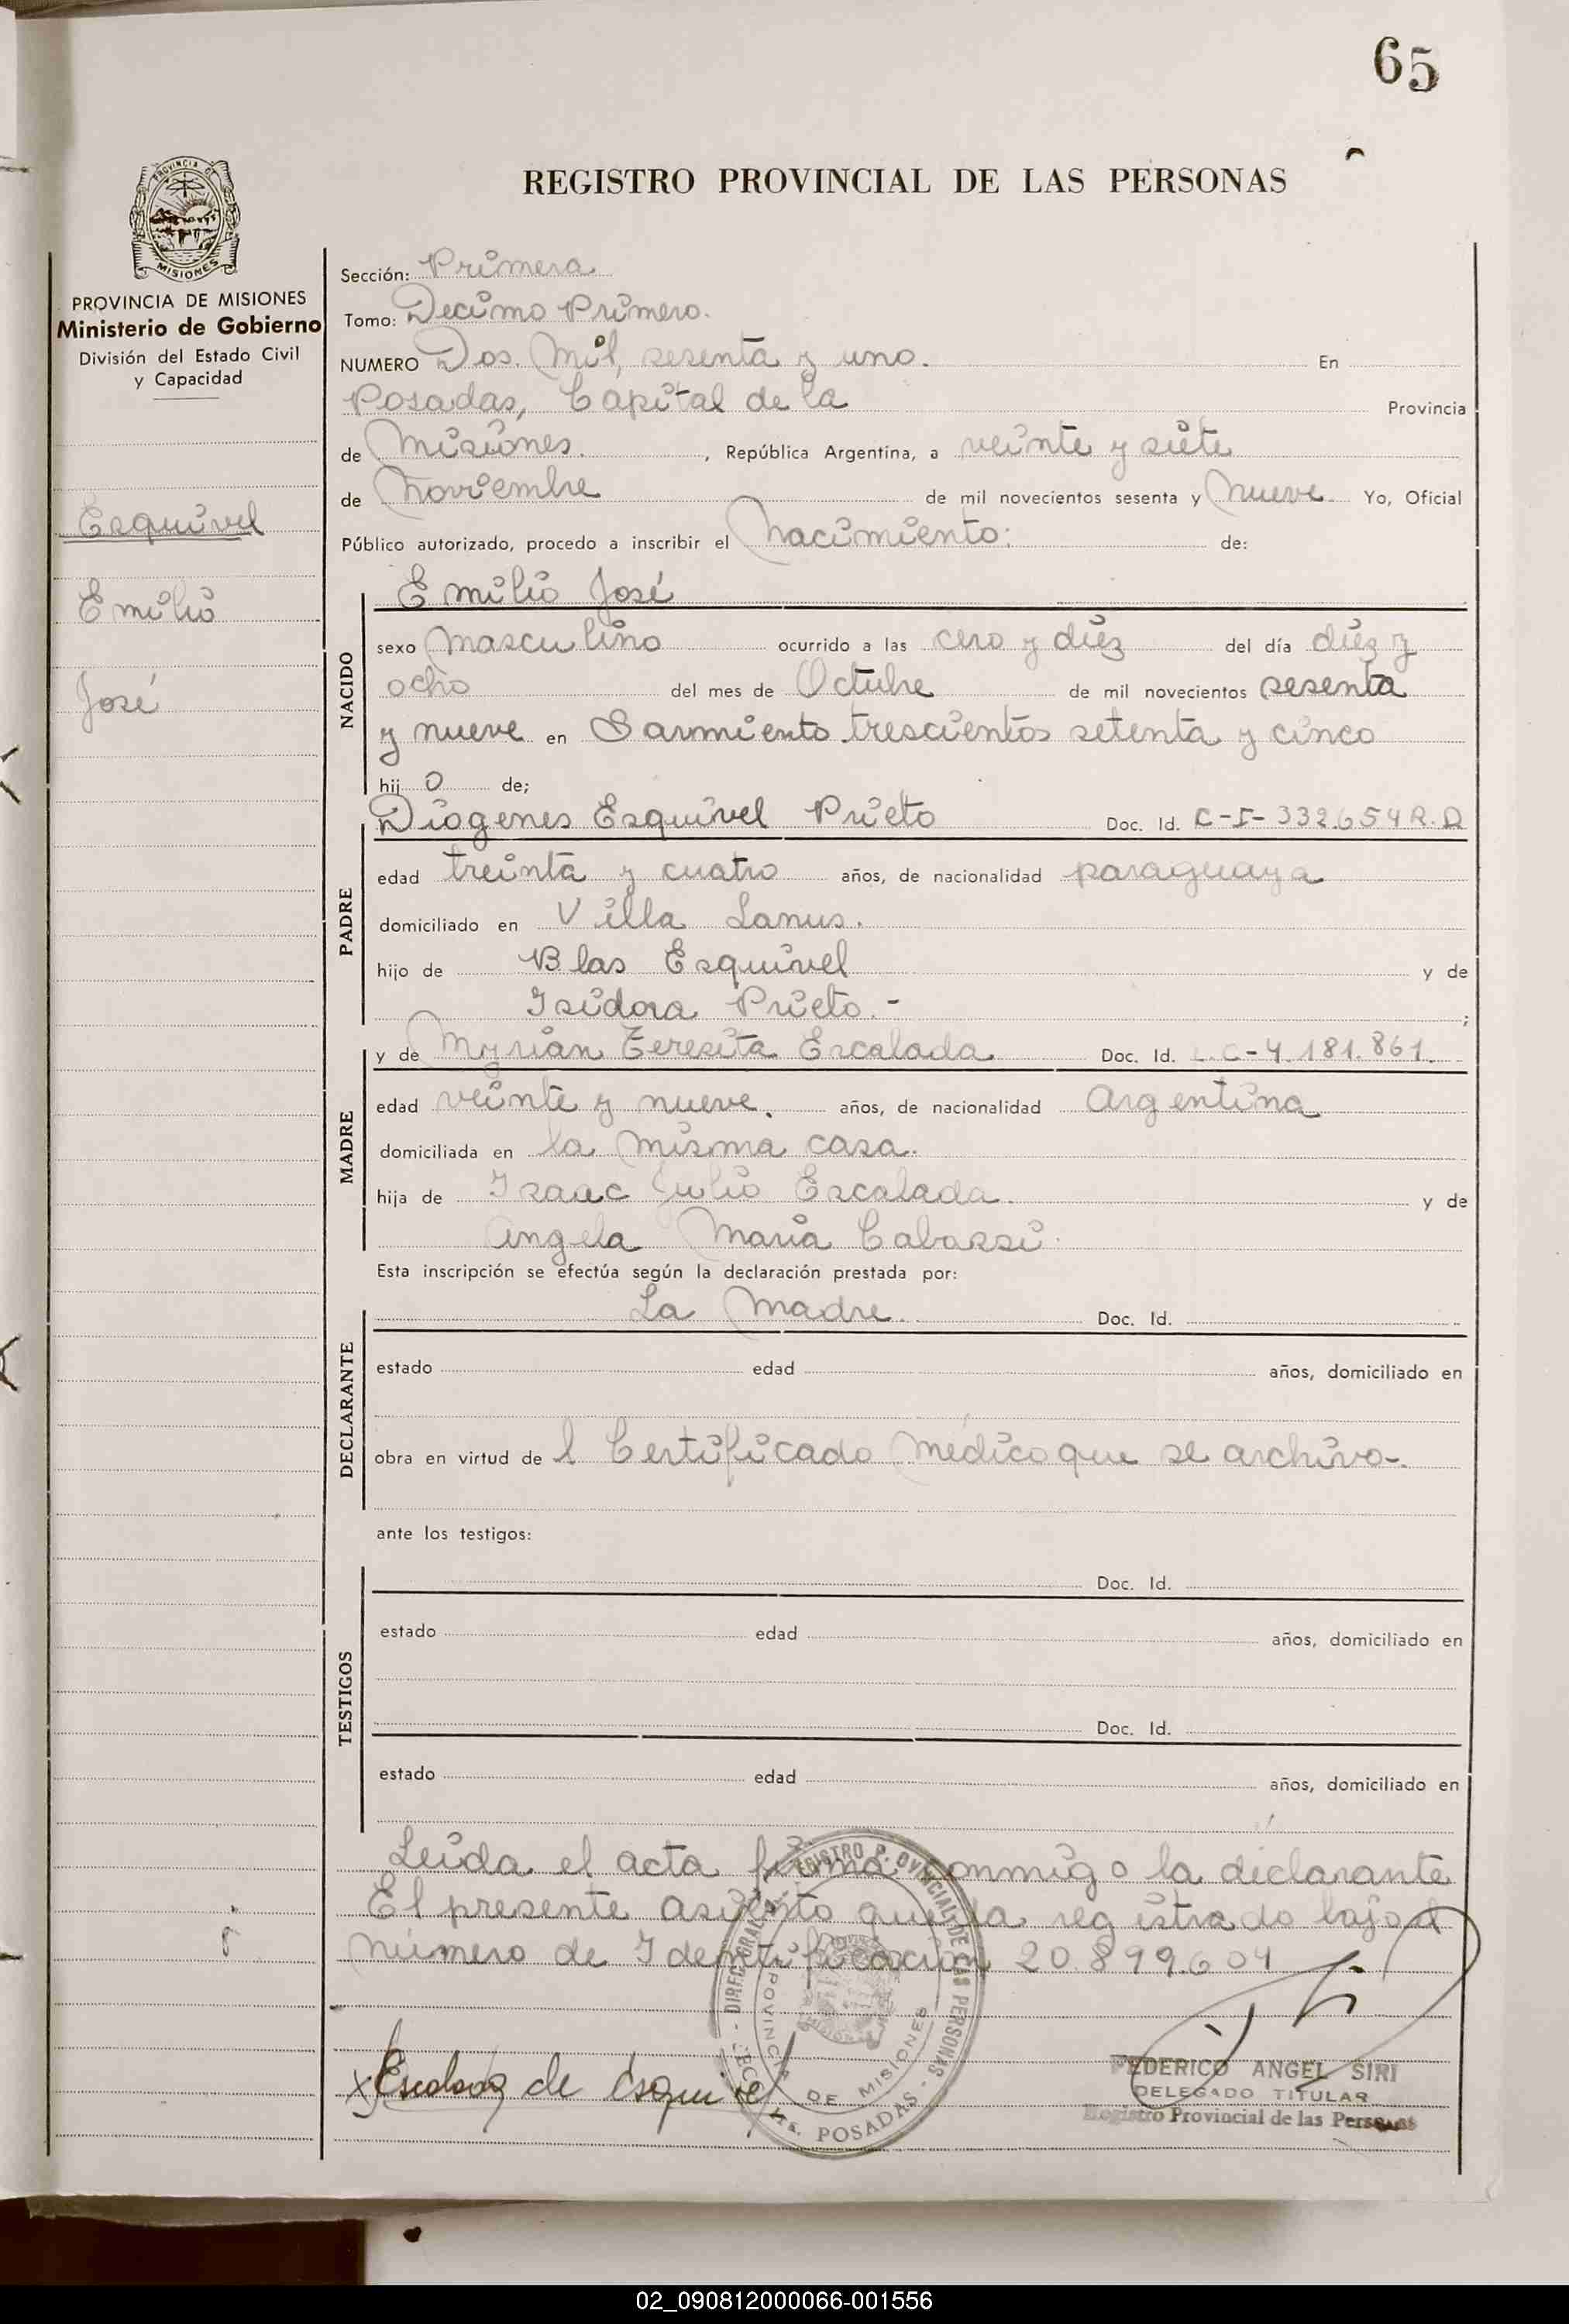 65
REGISTRO PROVINCIAL DE LAS PERSONAS
PROVINCIA DE
MISIONES
PROVINCIA DE MISIONES
Ministerio de Gobierno
División del Estado Civil
y Capacidad
Esquivel
Emilio
José
Sección: Primera
Tomo: Decimo Primero.
NUMERO Dos. Mil, sesenta y uno. En
Posadas, Capital de la Provincia
de Misiones. , República Argentina, a veinte y siete
de Noviembre de mil novecientos sesenta y Nueve Yo, Oficial
Público autorizado, procedo a inscribir el Nacimiento: de:
NACIDO
Emilio José
sexo Masculino ocurrido a las cero y diez del día diez y
ocho del mes de Octubre de mil novecientos sesenta
y nueve en Sarmiento trescientos setenta y cinco
hij o de;
PADRE
Diogenes Esquivel Prieto Doc. Id. C-I-332.654 R.D
edad treinta y cuatro años, de nacionalidad paraguaya
domiciliado en Villa Lanus.
hijo de Blas Esquivel y de
Isidora Prieto.- ;
MADRE
y de Myrian Teresita Escalada Doc. Id. L.C-4.181.861.
edad veinte y nueve. años, de nacionalidad Argentina
domiciliada en la misma casa.
hija de Isaac Julio Escalada. y de
Angela Maria Cabassi.
Esta inscripción se efectúa según la declaración prestada por:
DECLARANTE
La Madre. Doc. Id.
estado edad años, domiciliado en
obra en virtud de l Certificado Médico que se archivo-.
ante los testigos:
TESTIGOS
Doc. Id.
estado edad años, domiciliado en
Doc. Id.
estado edad años, domiciliado en
Leida el acta firma conmigo la declarante
El presente asiento queda registrado bajo el
número de Identificación 20.899.604
DIREC. GRAL. REGISTRO PROVINCIAL DE LAS PERSONAS - POSADAS
PROVINCIA DE MISIONES
x Escalada de Esquivel
FEDERICO ANGEL SIRI
DELEGADO TITULAR
Registro Provincial de las Personas
02_090812000066-001556